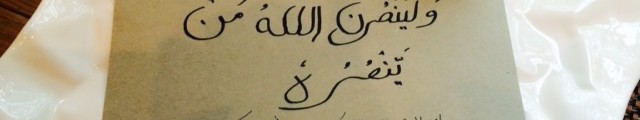 ولينصرن الله من
ينصره